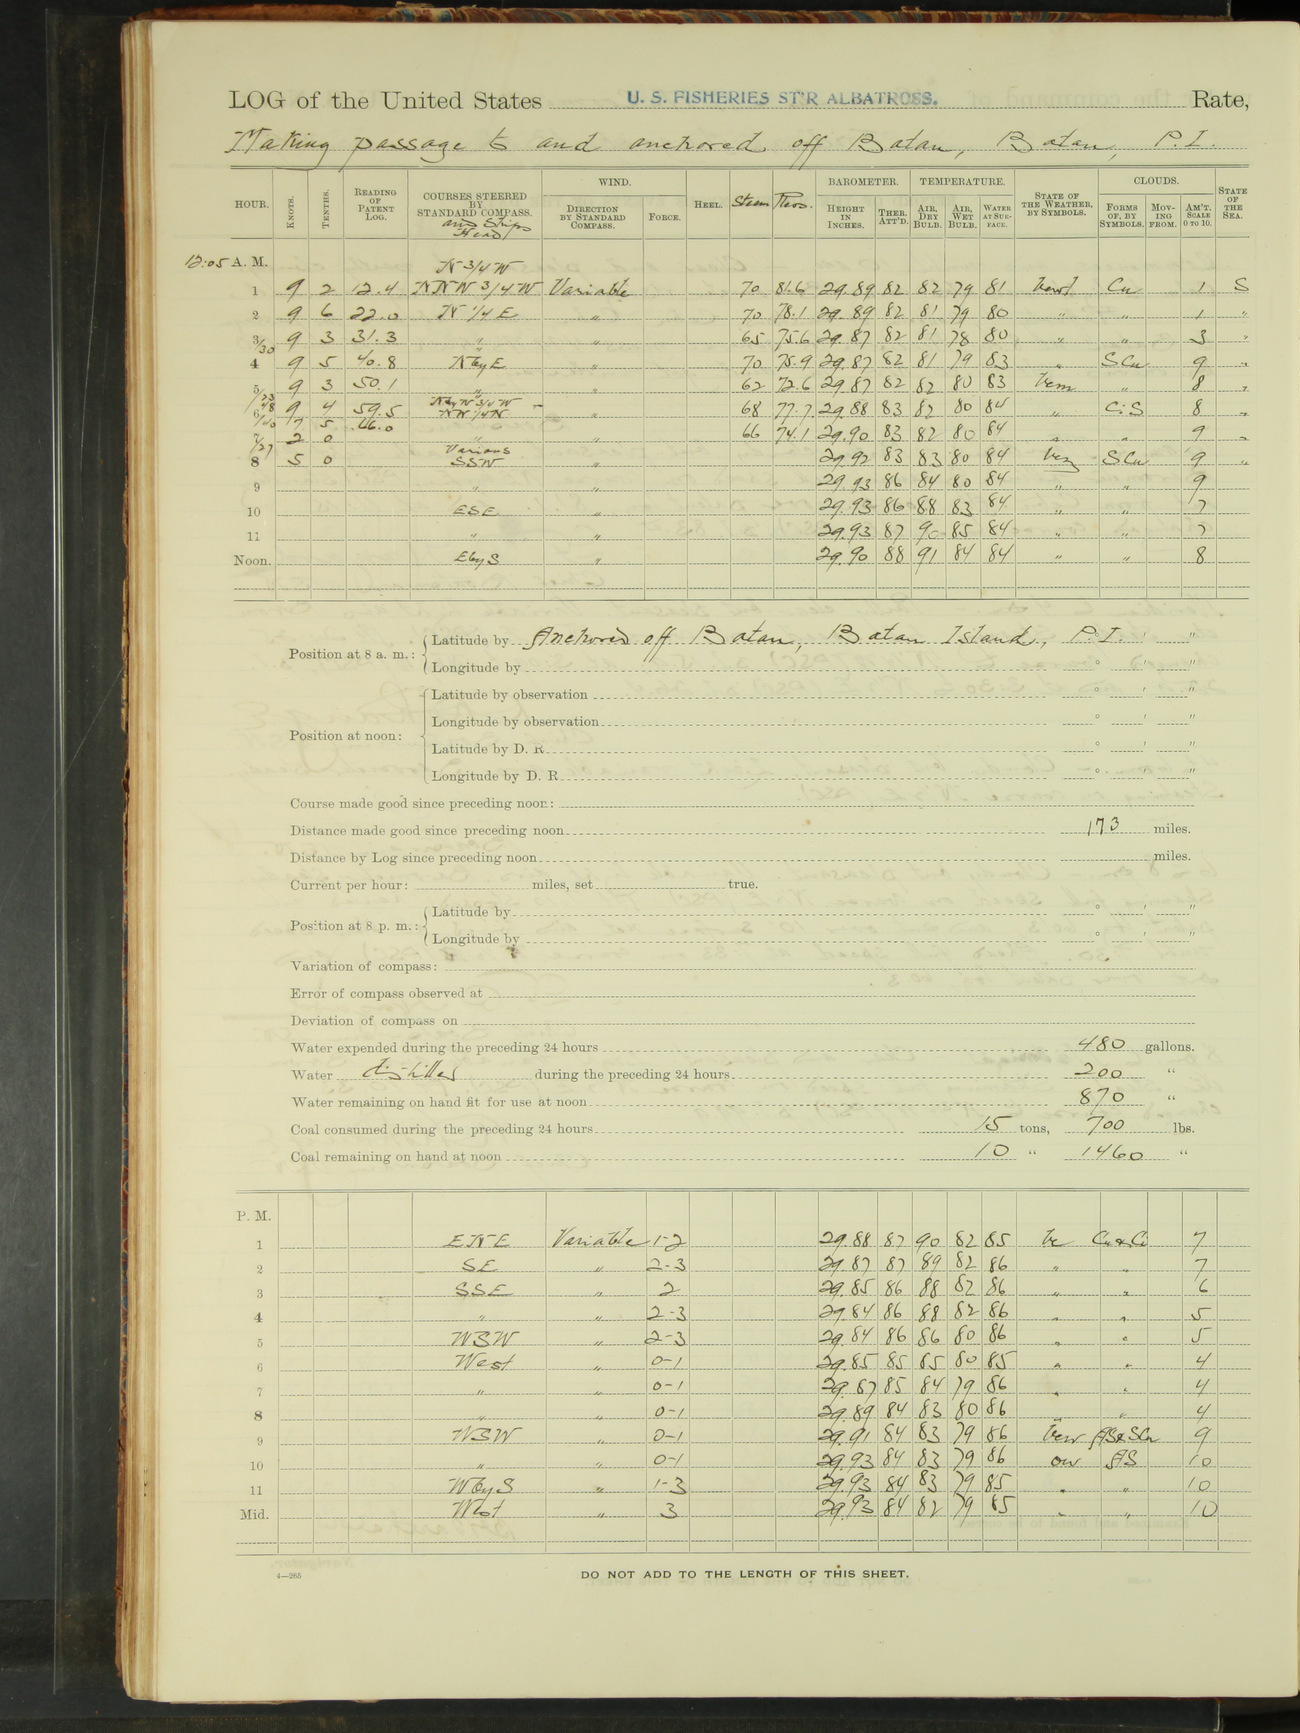 LOG of the United States U. S. FISHERIES ST'R ALBATROSS. Rate,
Making passage to and anchored off Batan, Batan, P.I.
HOUR. KNOTS. TENTHS. READING OF PATENT LOG. COURSES STEERED BY STANDARD COMPASS. and Ships Head WIND. DIRECTION BY STANDARD COMPASS. FORCE. HEEL. Steam Revs. BAROMETER. HEIGHT IN INCHES. THER. ATT'D. TEMPERATURE. AIR, DRY BULB. AIR, WET BULB. WATER AT SURFACE. STATE OF THE WEATHER, BY SYMBOLS. CLOUDS. FORMS OF, BY SYMBOLS. MOVING FROM. AM'T. SCALE 0 TO 10. STATE OF THE SEA.
12:05 A. M. N 3/4 W
1 9 2 12.4 NNW 3/4 W Variable 70 81.6 29.89 82 82 79 81 Cu 1 S
2 9 6 22.0 N 1/4 E " 70 78.1 29.89 82 81 79 80 " " 1 "
3 9 3 31.3 " " 65 75.6 29.87 82 81 78 80 " " 3 "
/30
4 9 5 40.8 NbyE " 70 75.9 29.87 82 81 79 83 " SCu 9 "
5 9 3 50.1 " " 62 72.6 29.87 82 82 80 83 bcm " 8 "
/23 NbyW 3/4 W
6 9 4 59.5 NW 1/4 N " 68 77.7 29.88 83 82 80 84 " CiS 8 "
/40 7 5 66.0
7 2 0 " " 66 74.1 29.90 83 82 80 84 " " 9 "
/27 Various
8 5 0 SSW " 29.92 83 83 80 84 SCu 9 "
9 " " 29.93 86 84 80 84 " " 9
10 ESE " 29.93 86 88 83 84 " " 7
11 " " 29.93 87 90 85 84 " " 7
Noon. EbyS " 29.90 88 91 84 84 " " 8
Position at 8 a. m.: Latitude by Anchored off Batan, Batan Island, P.I. ' "
Longitude by ° ' "
Position at noon: Latitude by observation ° ' "
Longitude by observation ° ' "
Latitude by D. R ° ' "
Longitude by D. R ° ' "
Course made good since preceding noon:
Distance made good since preceding noon 173 miles.
Distance by Log since preceding noon miles.
Current per hour: miles, set true.
Position at 8 p. m.: Latitude by ° ' "
Longitude by ° ' "
Variation of compass:
Error of compass observed at
Deviation of compass on
Water expended during the preceding 24 hours 480 gallons.
Water distilled during the preceding 24 hours 200 "
Water remaining on hand fit for use at noon 870 "
Coal consumed during the preceding 24 hours 15 tons, 700 lbs.
Coal remaining on hand at noon 10 " 1460 "
P. M.
1 ENE Variable 1-2 29.88 87 90 82 85 bc Cu&Ci 7
2 SE " 2-3 29.87 87 89 82 86 " " 7
3 SSE " 2 29.85 86 88 82 86 " " 6
4 " " 2-3 29.84 86 88 82 86 " " 5
5 WSW " 2-3 29.84 86 86 80 86 " " 5
6 West " 0-1 29.85 85 85 80 85 " " 4
7 " " 0-1 29.87 85 84 79 86 " " 4
8 " " 0-1 29.89 84 83 80 86 " " 4
9 WSW " 0-1 29.91 84 83 79 86 AS&SCu 9
10 " " 0-1 29.93 84 83 79 86 AS 10
11 WbyS " 1-3 29.93 84 83 79 85 " " 10
Mid. West " 3 29.93 84 82 79 85 " " 10
4—265
DO NOT ADD TO THE LENGTH OF THIS SHEET.